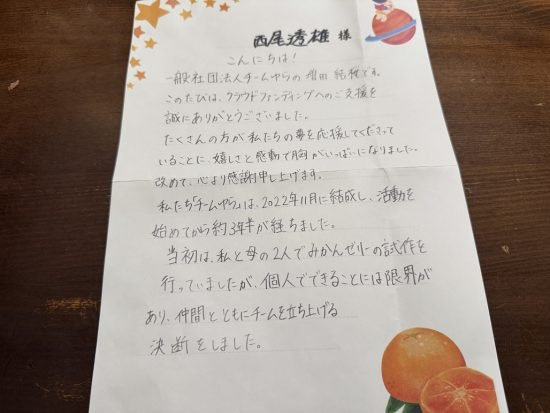 西尾透雄 様
こんにちは!
一般社団法人チームゆらの 増田 結桜です。
このたびは、クラウドファンディングへのご支援を
誠にありがとうございました。
たくさんの方が私たちの夢を応援してくださって
いることに、嬉しさと感動で胸がいっぱいになりました。
改めて、心より感謝申し上げます。
私たち「チームゆら」は、2022年11月に結成し、活動を
始めてから約3年半が経ちました。
当初は、私と母の2人でみかんゼリーの試作を
行っていましたが、個人でできることには限界が
あり、仲間とともにチームを立ち上げる
決断をしました。